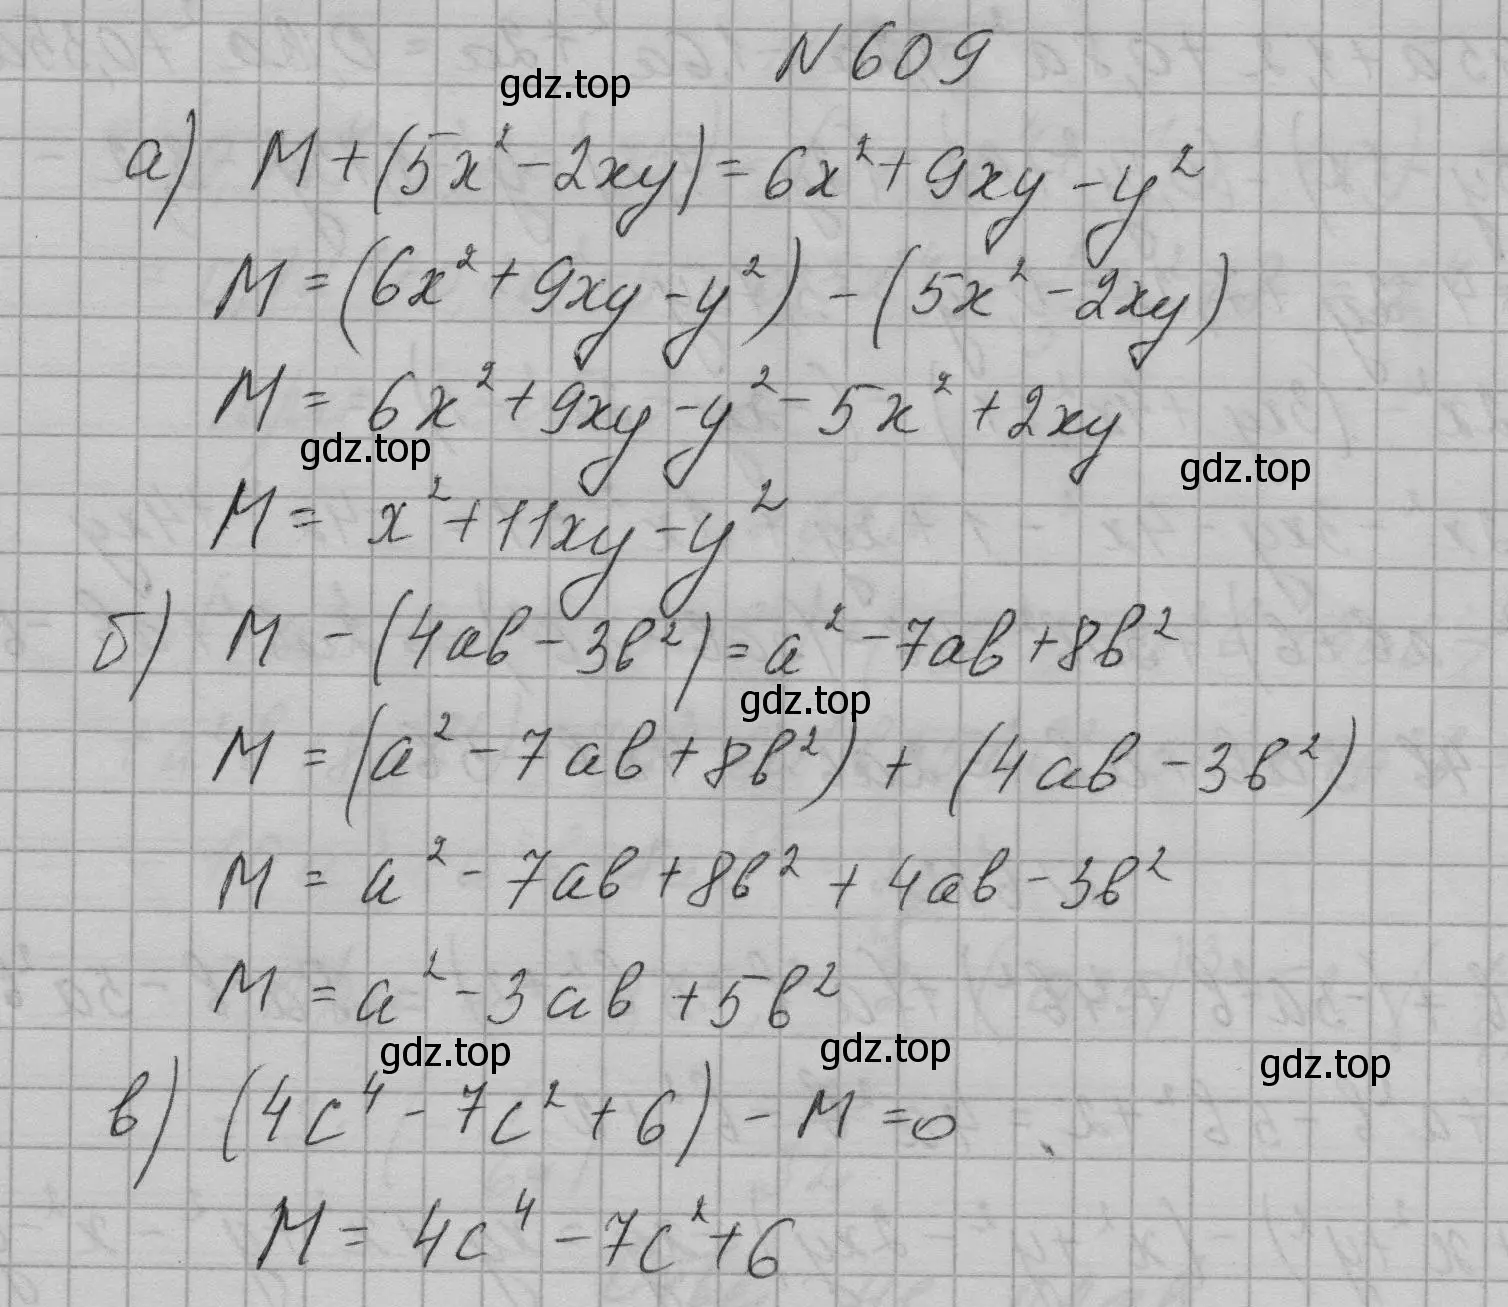 N 609
gdz.top
а) M + (5x² - 2xy) = 6x² + 9xy - y²
M = (6x² + 9xy - y²) - (5x² - 2xy)
M = 6x² + 9xy - y² - 5x² + 2xy
gdz.top
gdz.top
M = x² + 11xy - y²
б) M - (4ab - 3b²) = a² - 7ab + 8b²
gdz.top
M = (a² - 7ab + 8b²) + (4ab - 3b²)
M = a² - 7ab + 8b² + 4ab - 3b²
M = a² - 3ab + 5b²
gdz.top
gdz.top
gdz.top
в) (4c⁴ - 7c² + 6) - M = 0
M = 4c⁴ - 7c² + 6